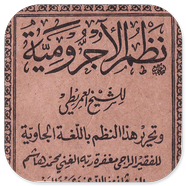 نظم الآجرومية
للشيخ العمريطي
وبحرد هذا النظم باللغة الجاوية
للفقير الراجي مغفرة ربه الغني محمد هاشم